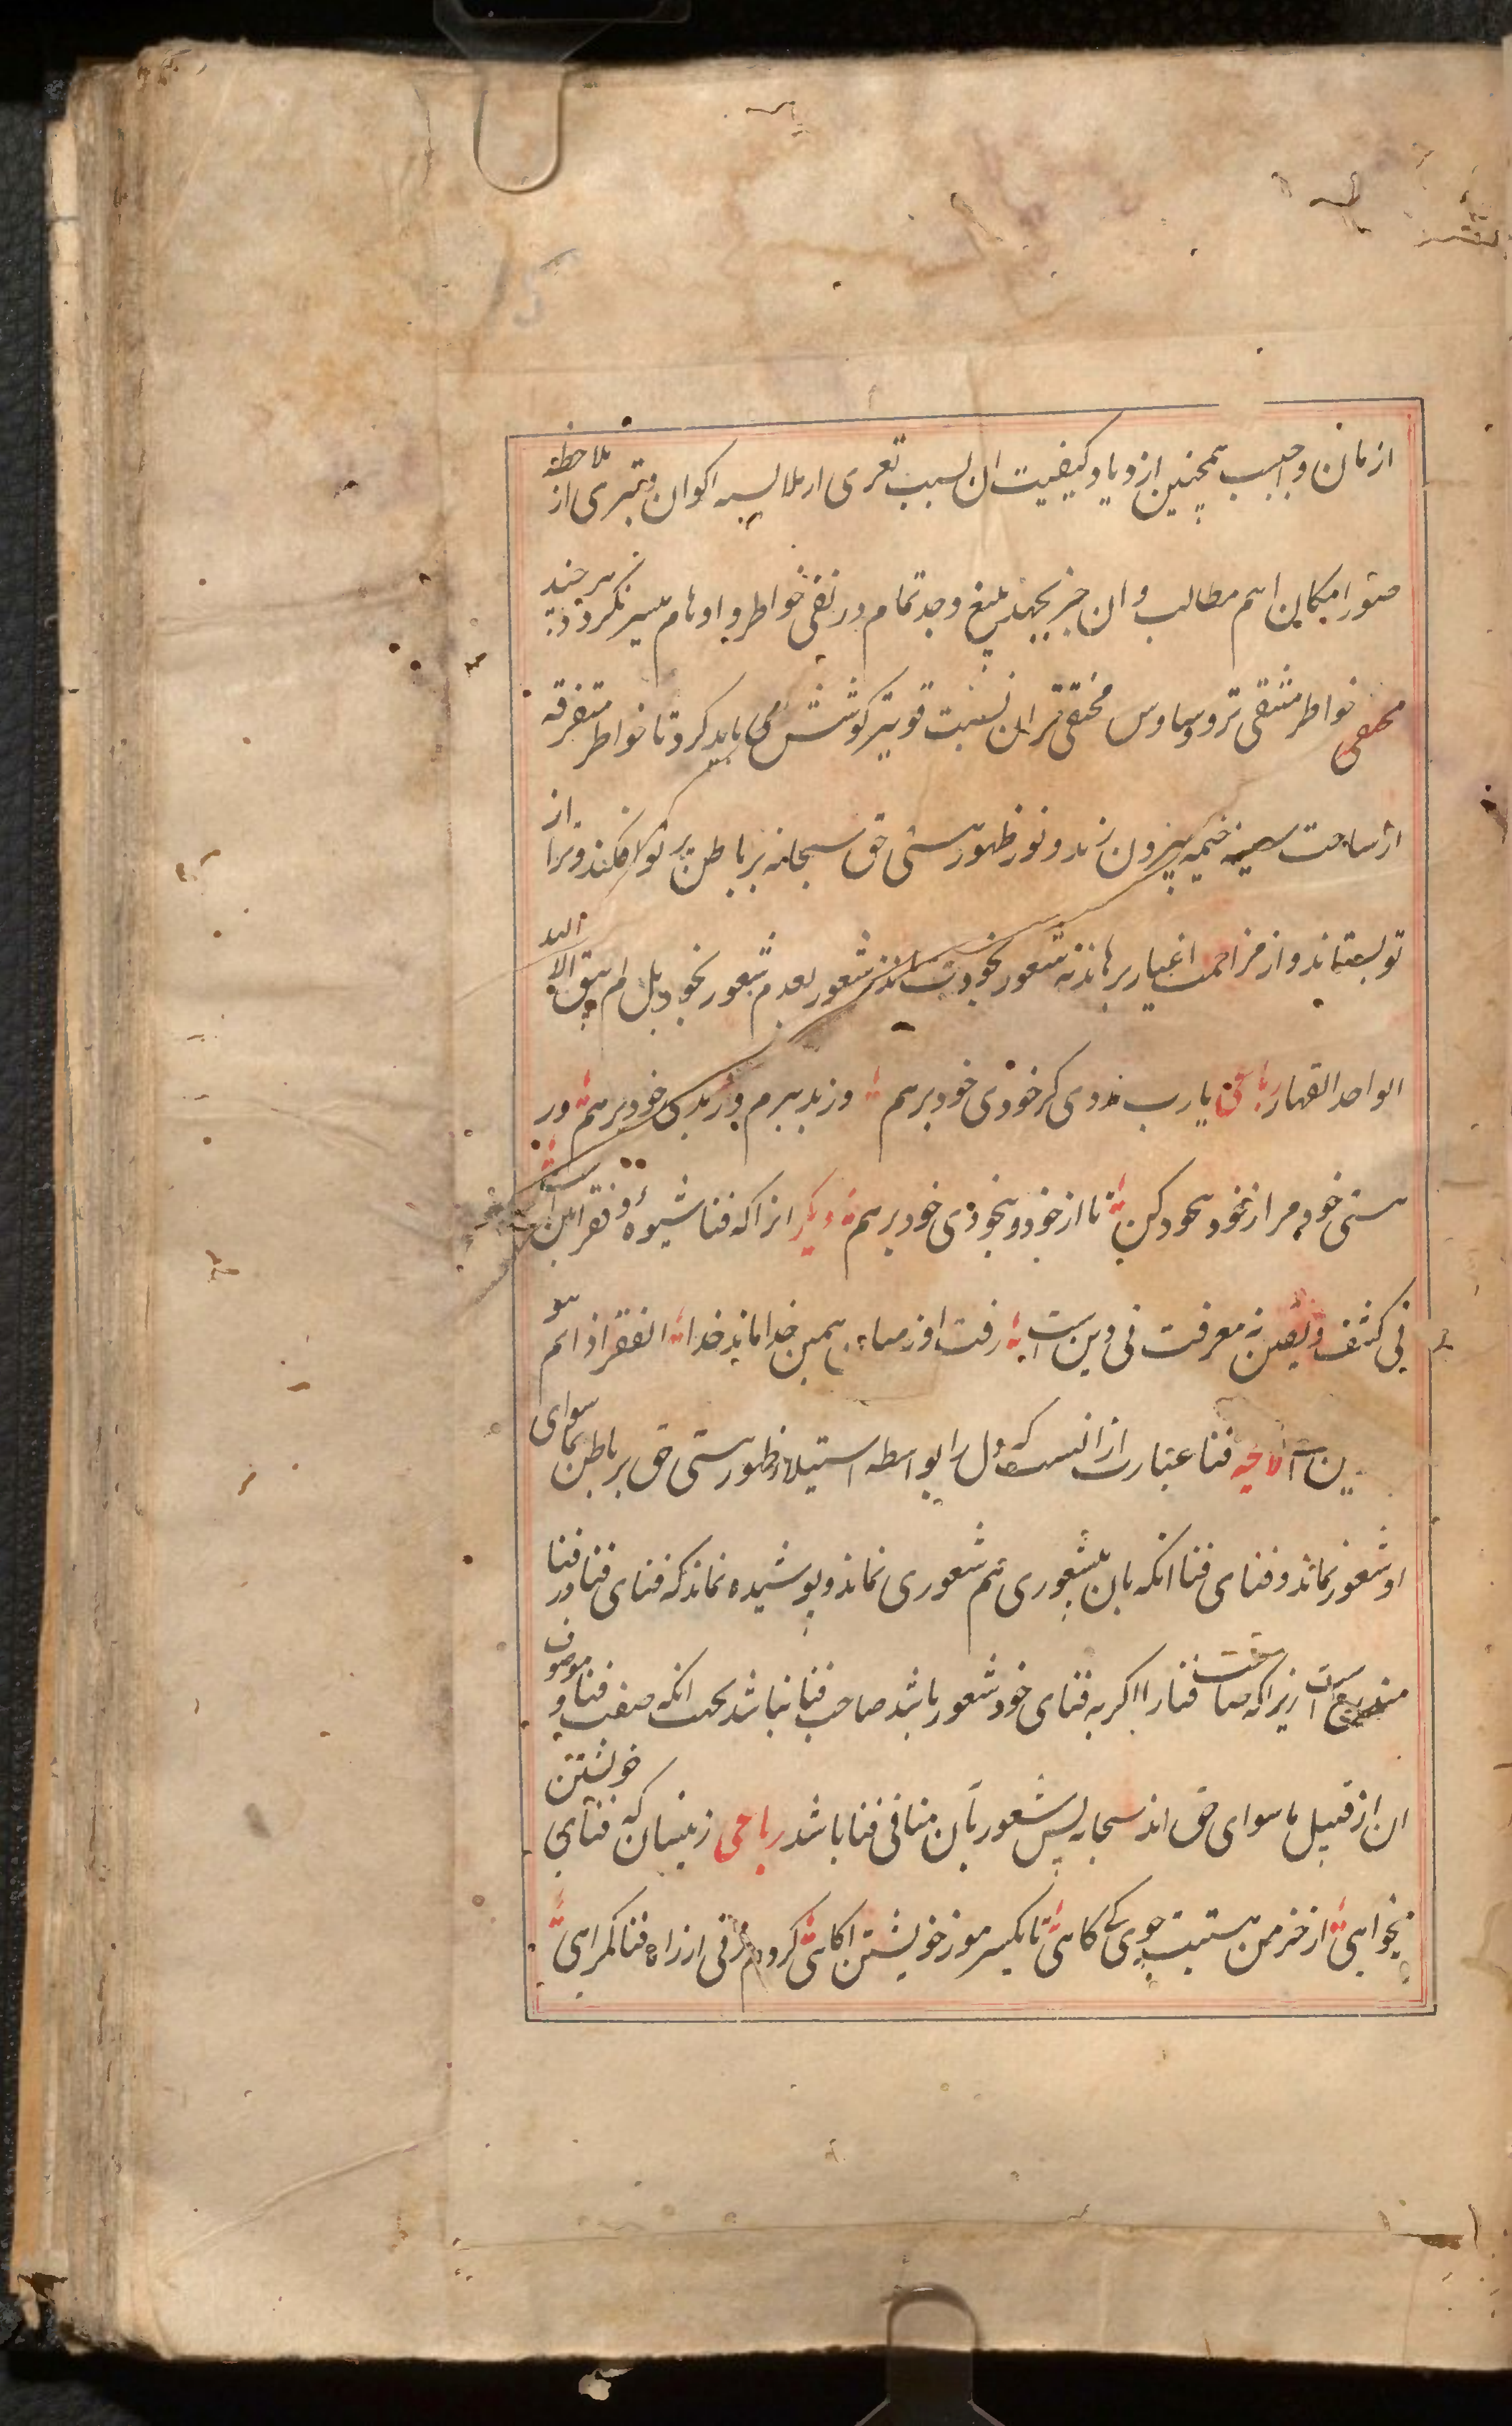 ازمان واجب همچنین ازدیاد کیفیت ان بسبب تعری از ملابس اکوان و تبری از ملاحظه
صور امکان اهم مطالب و ان جز بجهد بلیغ و جد تمام در نفی خواطر و اوهام میسر نکردد هر چند
خواطر منتفی تر و وساوس مختفی تر ان نسبت قویتر کوشش می باید کرد تا خواطر متفرقه
از ساحت سینه خیمه بیرون زند و نور ظهور هستی حق سبحانه بر باطن پرتو افکند و ترا از
تو بستاند و از مزاحمت اغیار برهاند نه شعور بخودت ماند نه شعور بعدم شعور بخود بل لم یبق الا الله
الواحد القهار رباعی یارب مددی کز خودی خود برهم وز بد ببرم وز بدی خود برهم در
هستی خود مرا ز خود بیخود کن تا از خود و بیخودی خود برهم دیکر انرا که فنا شیوه و فقر ایین است
نی کشف و یقین نه معرفت نی دین است رفت او ز میان همین خدا ماند خدا الفقر اذا تم هو
این است لایحه فنا عبارت از انست که دل را بواسطه استیلاء ظهور هستی حق بر باطن بماسوای
او شعور نماند و فنای فنا انکه بان بیشعوری هم شعوری نماند و پوشیده نماند که فنای فنا در فنا
مندرج است زیرا که صاحب فنا را اکر به فنای خود شعور باشد صاحب فنا نباشد بجهت انکه صفت فنا و موصوف
ان از قبیل ماسوای حق اند سبحانه پس شعور بان منافی فنا باشد رباعی زینسان که فنای خویشتن
میخواهی از خرمن هستیت جوی کی کاهی تا یکسر مو ز خویشتن اکاهی کر دم زنی از راه فنا کمراهی